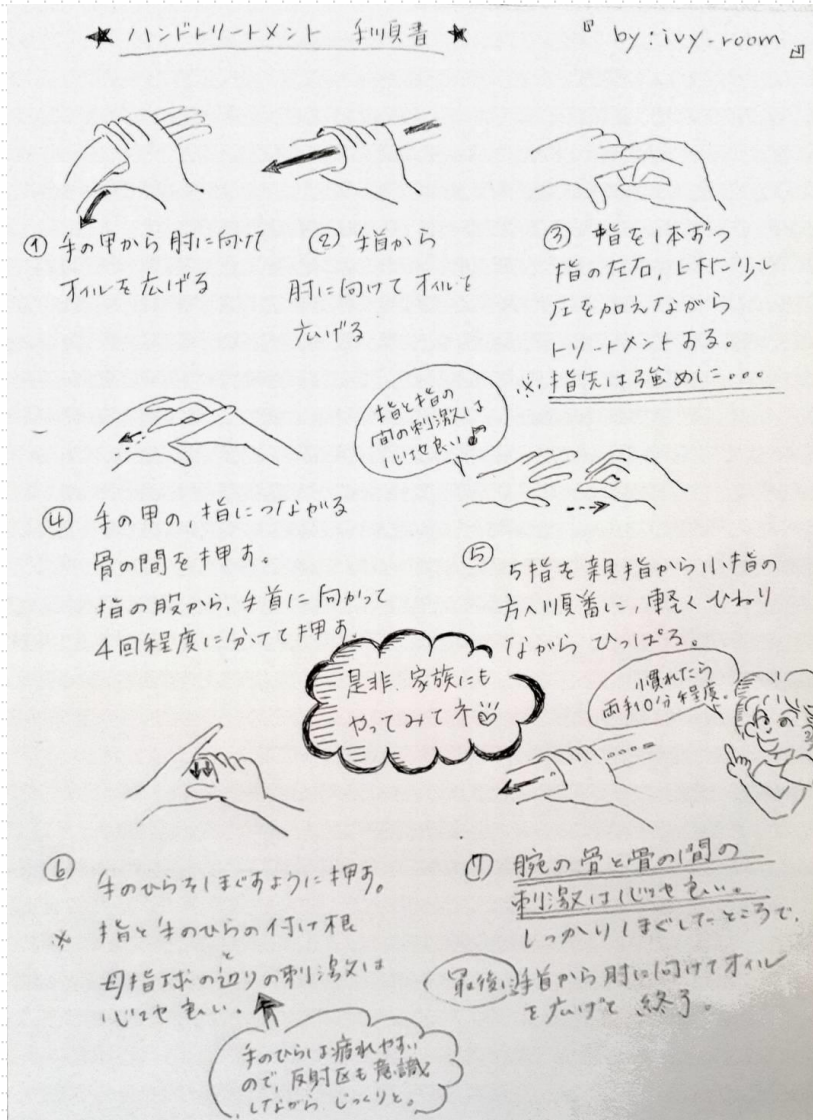 ★ ハンドトリートメント 手順書 ★
『by:ivy-room』
① 手の甲から肘に向けて
オイルを広げる
② 手首から
肘に向けてオイルを
広げる
③ 指を1本ずつ
指の左右,上下に少し
圧を加えながら
トリートメントする。
※指先は強めに...
指と指の
間の刺激は
心地良い♪
④ 手の甲の,指につながる
骨の間を押す。
指の股から,手首に向かって
4回程度に分けて押す
⑤ 5指を親指から小指の
方へ順番に,軽くひねり
ながらひっぱる。
是非、家族にも
やってみてネ
慣れたら
両手10分程度。
⑥ 手のひらをほぐすように押す。
※ 指と手のひらの付け根
と
母指球の辺りの刺激は
心地良い。
手のひらは疲れやすい
ので,反射区も意識
しながらじっくりと。
⑦ 腕の骨と骨の間の
刺激は心地良い。
しっかりほぐしたところで、
最後に手首から肘に向けてオイル
を広げて終了。